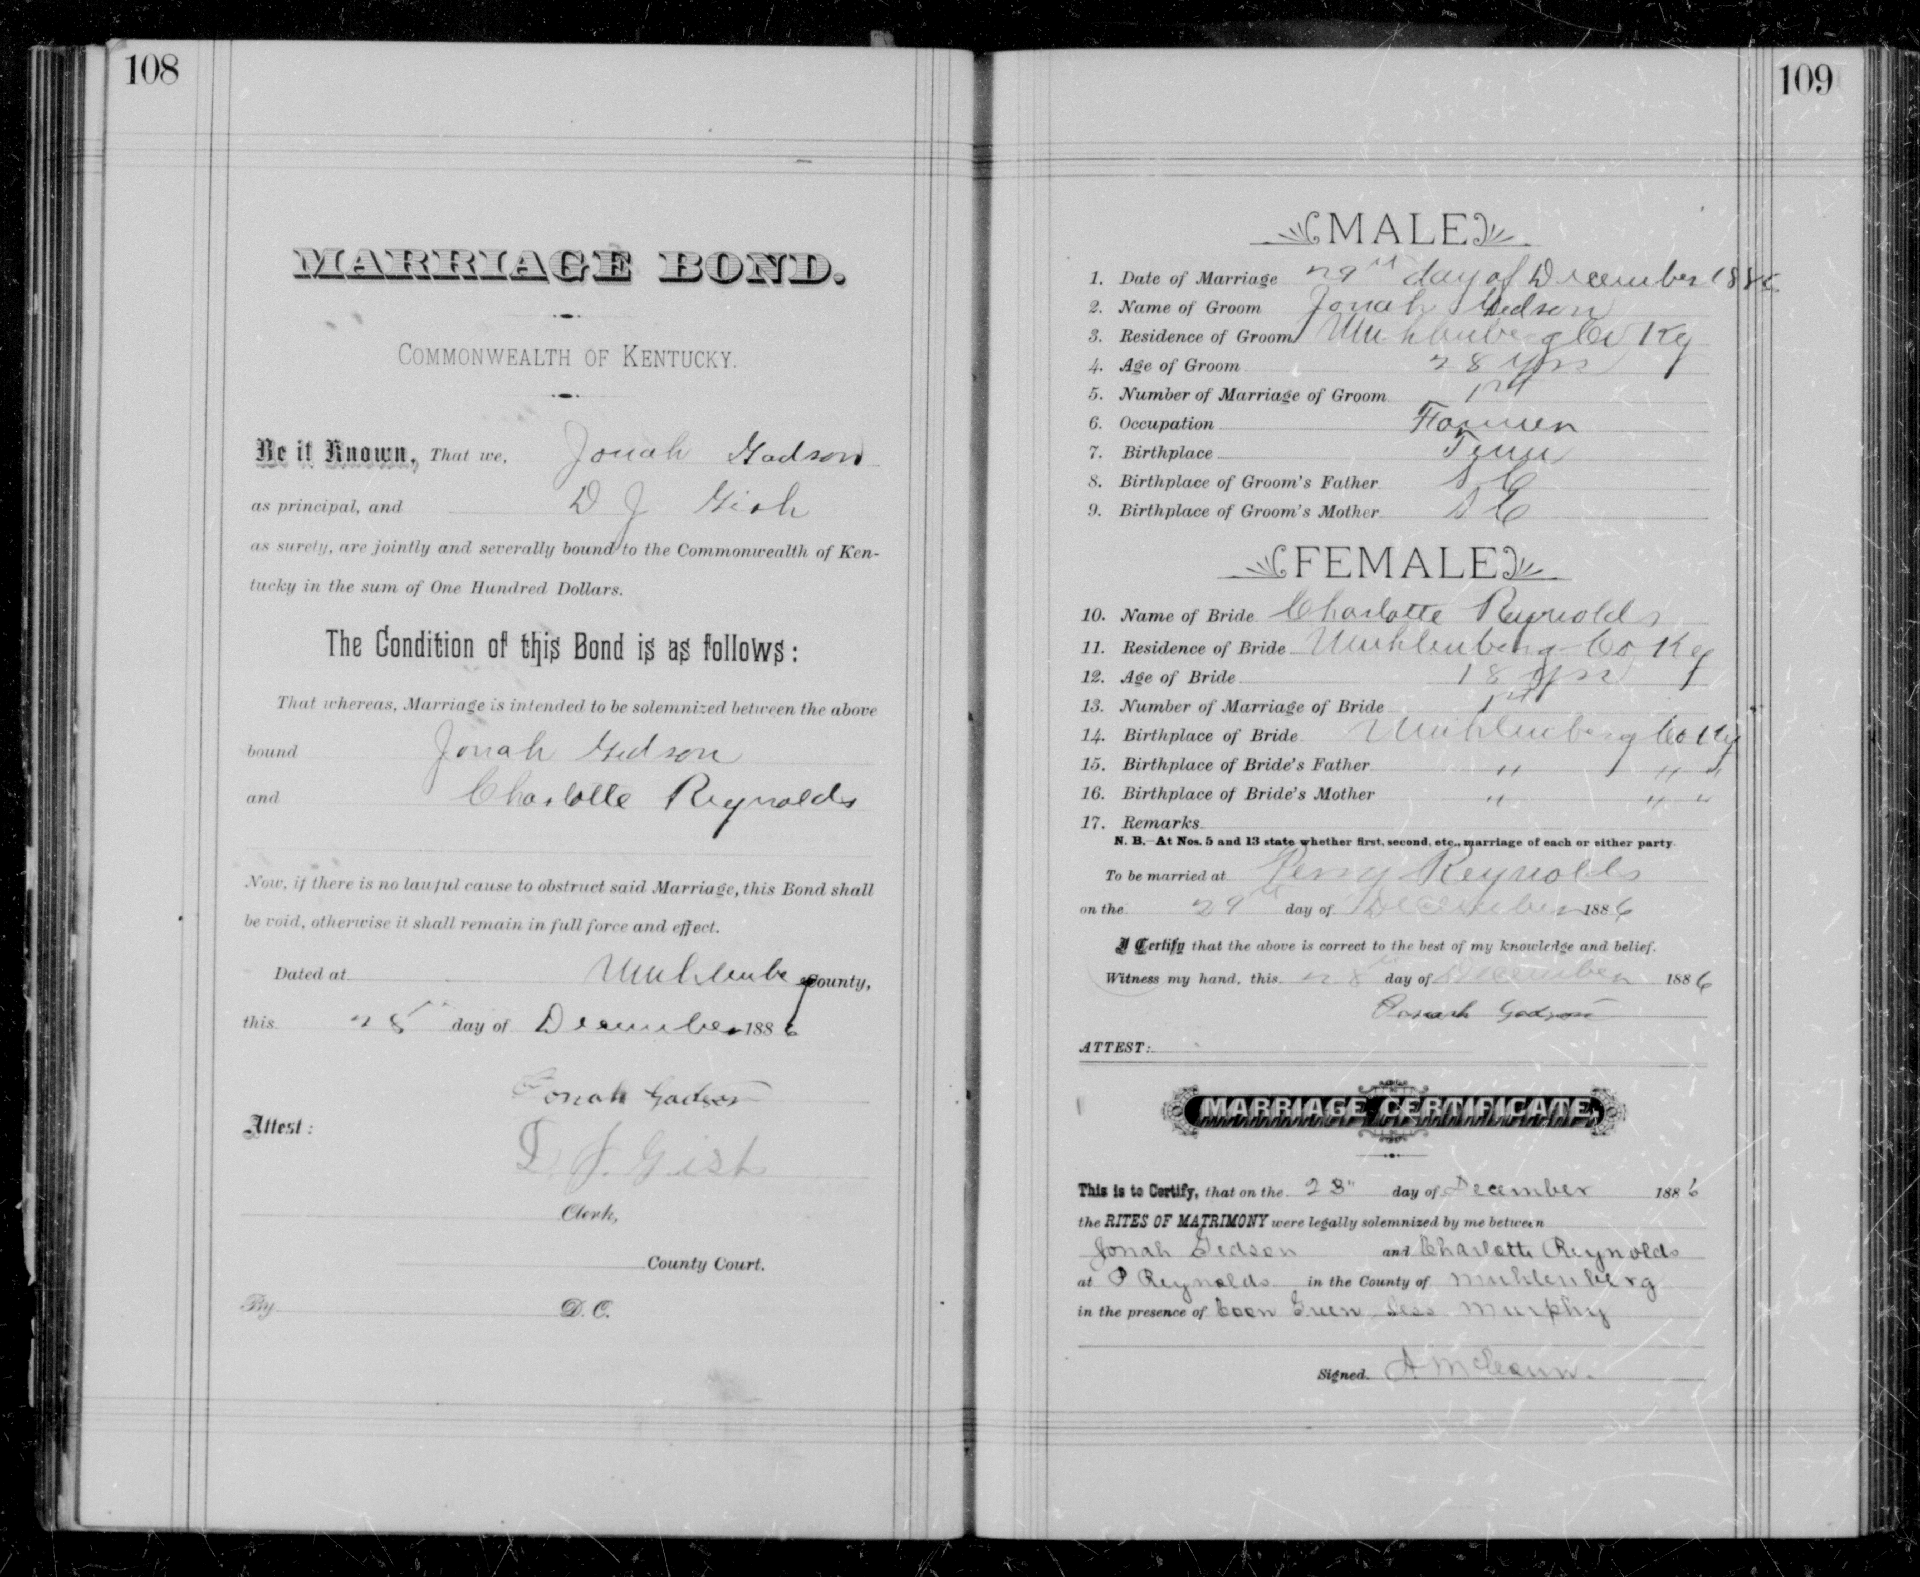 108
MARRIAGE BOND.
COMMONWEALTH OF KENTUCKY.
Be it Known, That we, Jonah Gadson
as principal, and D J Gish
as surety, are jointly and severally bound to the Commonwealth of Ken-
tucky in the sum of One Hundred Dollars.
The Condition of this Bond is as follows:
That whereas, Marriage is intended to be solemnized between the above
bound Jonah Gedson
and Charlotte Reynolds
Now, if there is no lawful cause to obstruct said Marriage, this Bond shall
be void, otherwise it shall remain in full force and effect.
Dated at Muhlenbe g County,
this 28 day of December 1886
Jonah Gadson
Attest:
D J. Gish
Clerk,
County Court.
By D. C.
109
MALE
1. Date of Marriage 29th day of December 1886
2. Name of Groom Jonah Gedson
3. Residence of Groom Muhlenberg Co Ky
4. Age of Groom 28 yrs
5. Number of Marriage of Groom 1st
6. Occupation Farmer
7. Birthplace Tenn
8. Birthplace of Groom's Father S C
9. Birthplace of Groom's Mother S C
FEMALE
10. Name of Bride Charlotte Reynolds
11. Residence of Bride Muhlenberg Co Ky
12. Age of Bride 18 yrs
13. Number of Marriage of Bride 1st
14. Birthplace of Bride Muhlenberg Co Ky
15. Birthplace of Bride's Father " " "
16. Birthplace of Bride's Mother " " "
17. Remarks
N. B.—At Nos. 5 and 13 state whether first, second, etc., marriage of each or either party.
To be married at Perry Reynolds
on the 29th day of December 1886
I Certify that the above is correct to the best of my knowledge and belief.
Witness my hand, this 28th day of December 1886
Jonah Gadson
ATTEST:
MARRIAGE CERTIFICATE.
This is to Certify, that on the 28" day of December 1886
the RITES OF MATRIMONY were legally solemnized by me between
Jonah Gedson and Charlotte Reynolds
at P Reynolds in the County of Muhlenberg
in the presence of Green Murphy
Signed. A